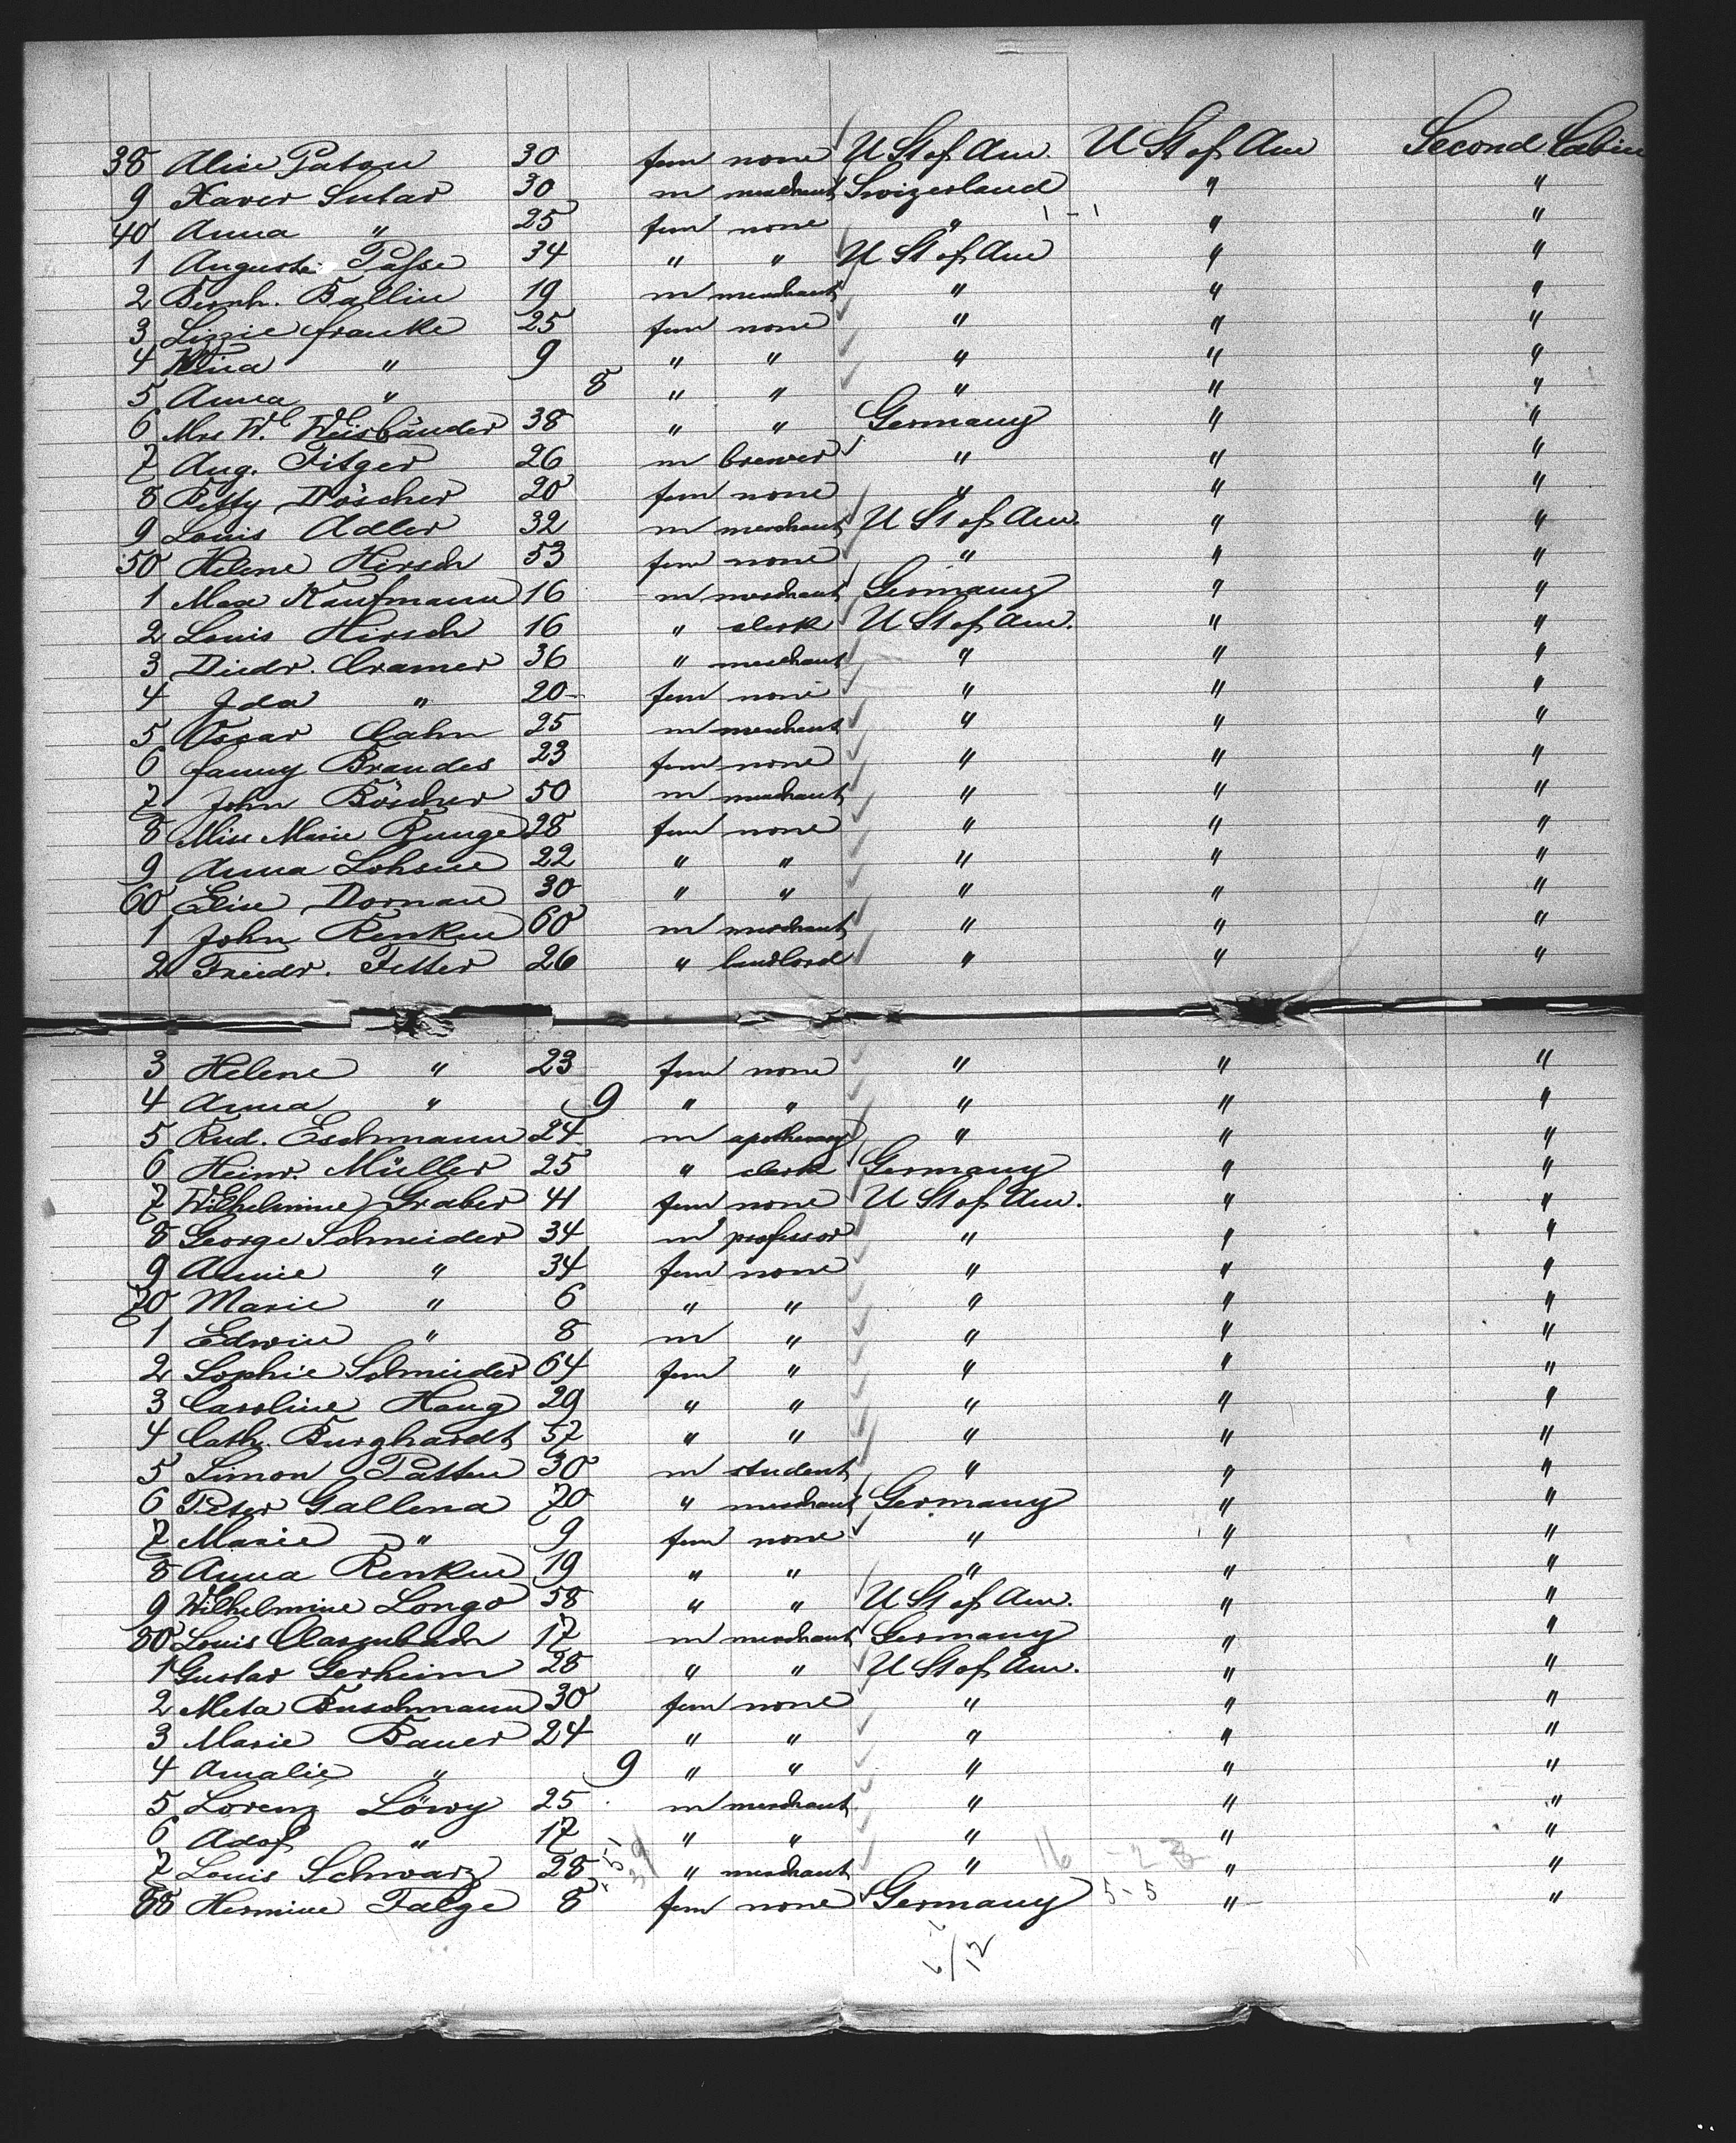 38 Alice Paton 30 fem none U St of Am. U St of Am Second Cabin
9 Xaver Sutar 30 m merchant Swizerland " "
40 Anna " 25 fem none " 1-1 " "
1 Auguste Passe 34 " " U St of Am " "
2 Bernh. Ballin 19 m merchant " " "
3 Lizzie Franke 25 fem none " " "
4 Nina " 9 " " " " "
5 Anna " 8 " " " " "
6 Mrs W. Weisbänder 38 " " Germany " "
7 Aug. Fitger 26 m brewer " " "
8 Betty Döscher 20 fem none " " "
9 Louis Adler 32 m merchant U St of Am. " "
50 Helene Hirsch 53 fem none " " "
1 Max Kaufmann 16 m merchant Germany " "
2 Louis Hirsch 16 " clerk U St of Am. " "
3 Diedr. Cramer 36 " merchant " " "
4 Ida " 20 fem none " " "
5 Oscar Cahn 25 m merchant " " "
6 Fanny Brandes 23 fem none " " "
7 John Böscher 50 m merchant " " "
8 Miss Marie Runge 28 fem none " " "
9 Anna Lohsen 22 " " " " "
60 Elise Dornau 30 " " " " "
1 John Renken 60 m merchant " " "
2 Friedr. Fetter 26 " landlord " " "
3 Helene " 23 fem none " " "
4 Anna " 9 " " " " "
5 Rud. Eschmann 24 m apothecary " " "
6 Heinr. Müller 25 " clerk Germany " "
7 Wilhelmine Graber 41 fem none U St of Am. " "
8 George Schneider 34 m professor " " "
9 Annie " 34 fem none " " "
70 Marie " 6 " " " " "
1 Edwin " 8 m " " " "
2 Sophie Schneider 64 fem " " " "
3 Caroline Haug 29 " " " " "
4 Cath. Burghardt 57 " " " " "
5 Simon Patten 30 m student " " "
6 Peter Gallena 70 " merchant Germany " "
7 Marie " 9 fem none " " "
8 Anna Renken 19 " " " " "
9 Wilhelmine Longo 58 " " U St of Am. " "
80 Louis 17 m merchant Germany " "
1 Gustav Gerheim 28 " " U St of Am. " "
2 Meta Buschmann 30 fem none " " "
3 Marie Bauer 24 " " " " "
4 Amalie " 9 " " " " "
5 Lorenz Löwy 25 m merchant " " "
6 Adof " 17 " " " " "
7 Louis Schwarz 28 " merchant " 16 - 23 " "
88 Hermine Falge 8 fem none Germany 5-5 " "